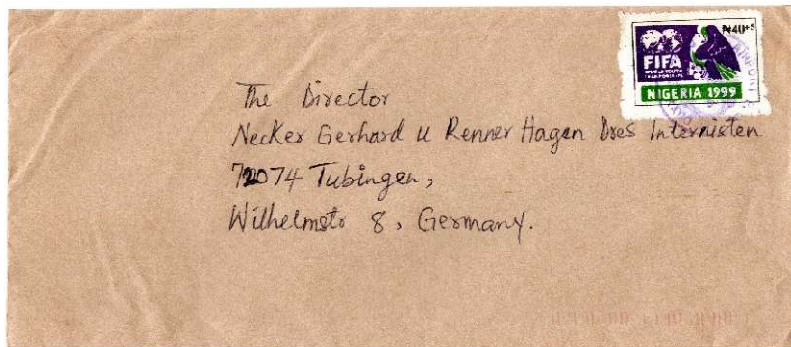 ₦40
FIFA
NIGERIA 1999
The Director
Necker Gerhard u Renner Hagen Dres Internisten
72074 Tubingen,
Wilhelmstr 8, Germany.